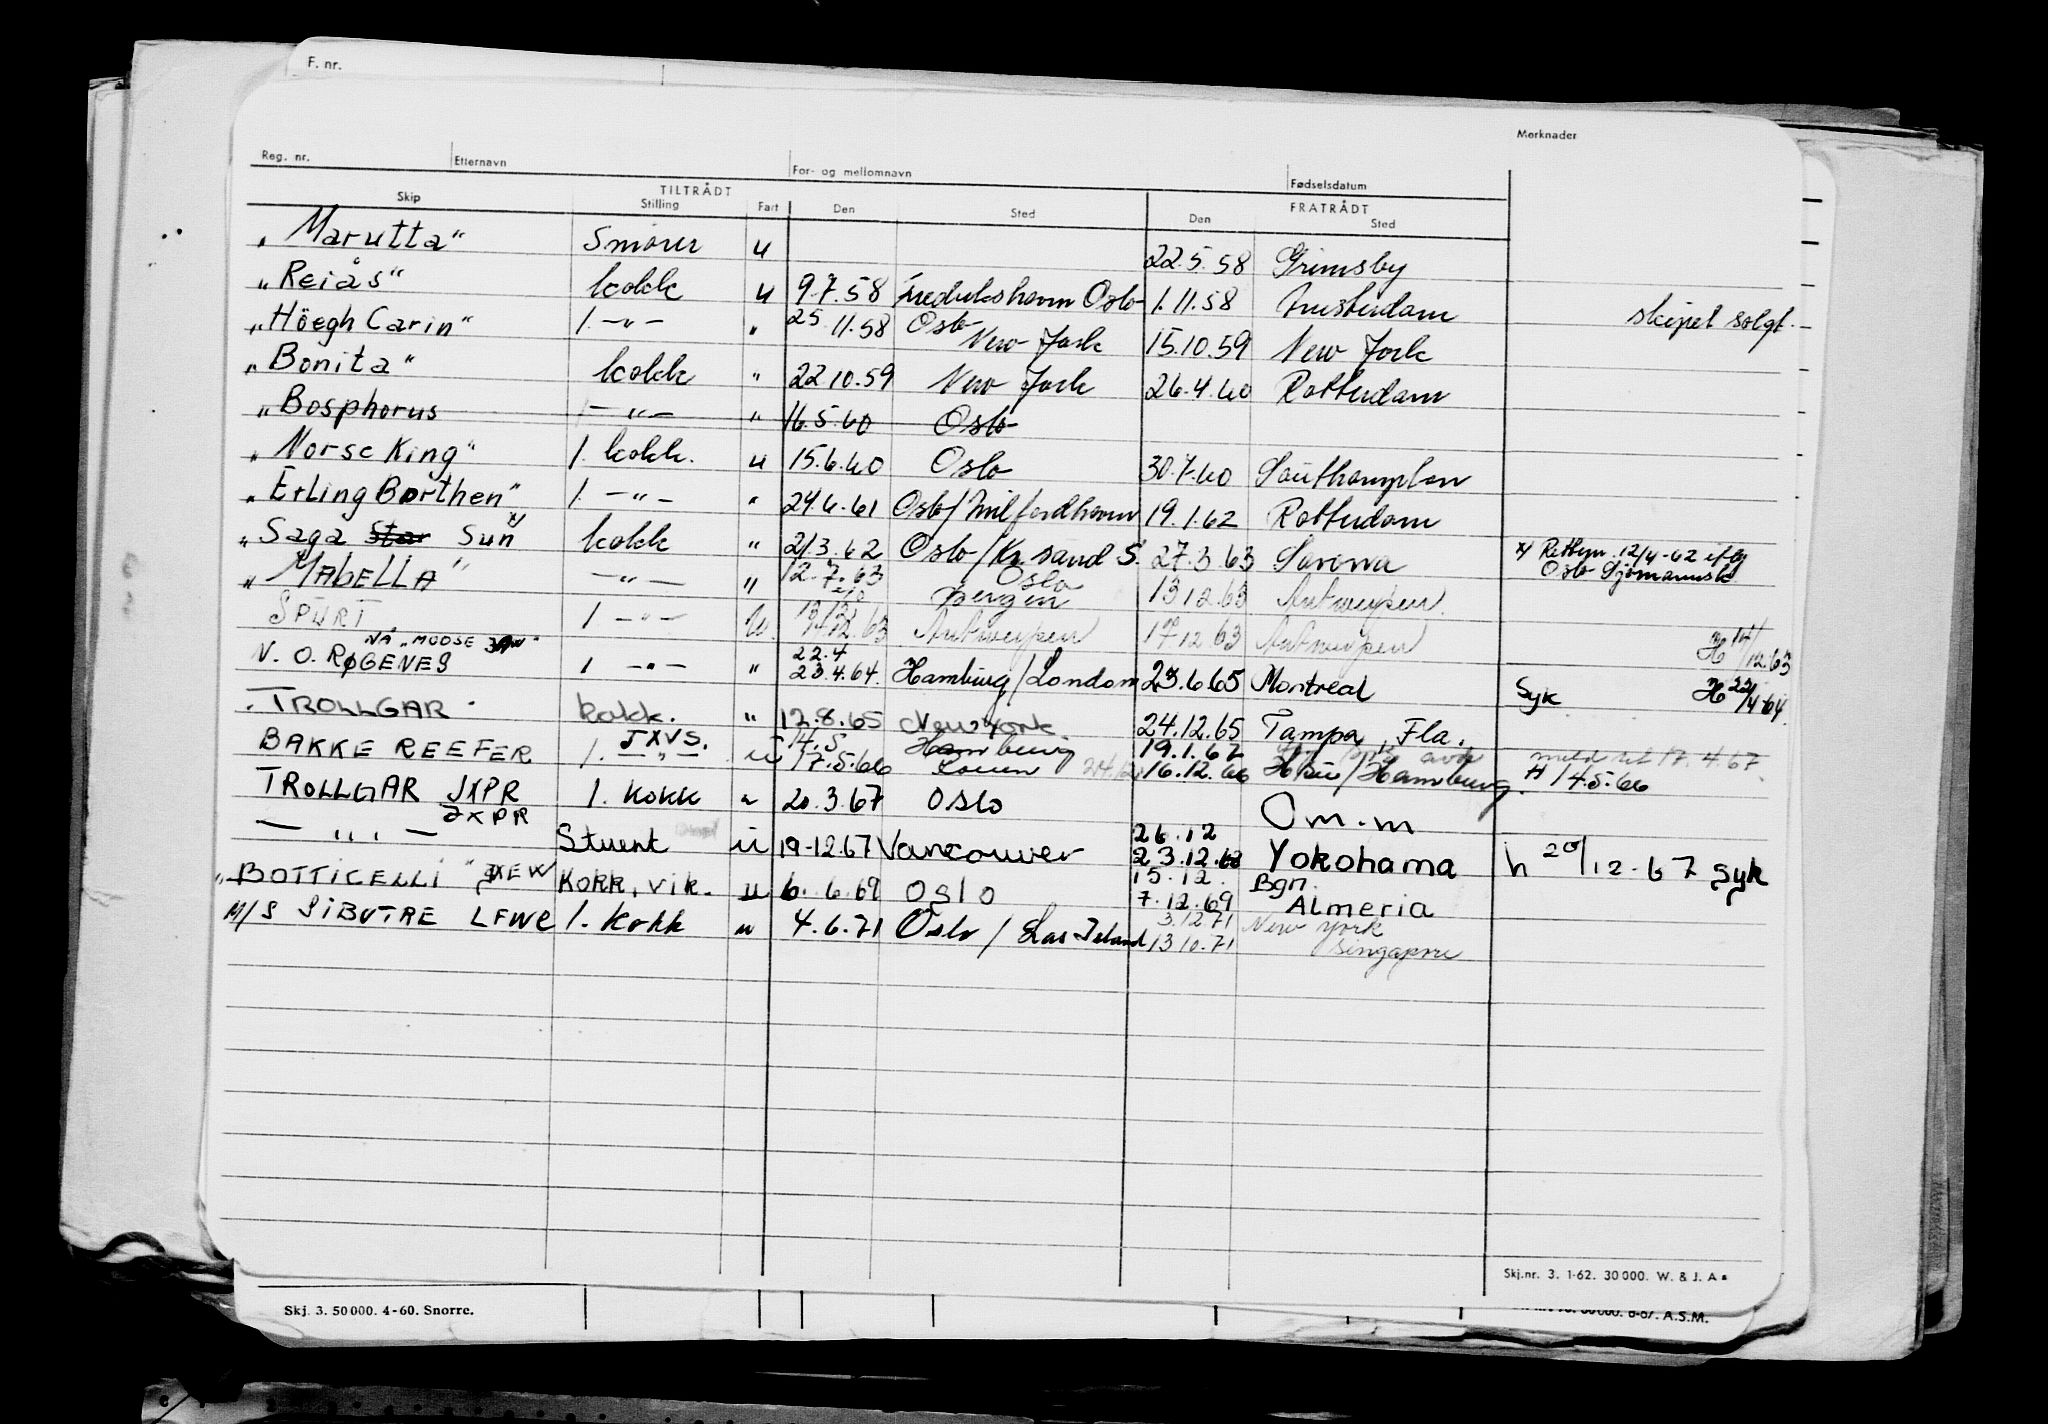 F. nr.
Merknader
Reg. nr. Etternavn For- og mellomnavn Fødselsdatum
TILTRÅDT FRATRÅDT
Skip Stilling Fart Den Sted Den Sted
"Marutta" Smører u 22.5.58 Grimsby
"Reiås" kokk u 9.7.58 Oslo 1.11.58 Amsterdam skipet solgt.
"Höegh Carin" 1. —"— " 25.11.58 Oslo New York 15.10.59 New York
"Bonita" kokk " 22.10.59 New York 26.4.60 Rotterdam
"Bosphorus —"— " 16.5.60 Oslo
"Norse King" 1. kokk. u 15.6.60 Oslo 30.7.60 Southampton
"Erling Borthen" 1. —"— " 24.6.61 Oslo/Milfordhavn 19.1.62 Rotterdam
"Saga Star Sun x/ kokk " 2/3.62 Oslo/Kr.sand S. 27.3.63 Savona x/ 12/4-62
Oslo
"MABELLA" —"— " 12.7.63 Oslo Bergen 13.12.63 Antwerpen
SPURT 1 —"— u. 63 Antwerpen 17.12.63 Antwerpen H 14/12.63
NÅ "MOOSE
N. O. RØGENES 1 —"— " 22.4 23.4.64. Hamburg/London 23.6.65 Montreal Syk H 22/4-64.
"TROLLGAR" kokk. " 12.8.65 New York 24.12.65 Tampa, Fla.
BAKKE REEFER JXVS. 1. —"— u 14.5 17.5.66 Hamburg Rouen 19.1.67 16.12.66 /Hamburg. 17.4.67. H 14.5.66
TROLLGAR JXPR 1. kokk " 20.3.67 OSLO Om.m
— " — JXPR Stuert u 19-12.67 Vancouver 26.12 23.12.68 Yokohama h 20/12-67 Syk
"BOTTICELLI" KOKK, vik. u 6.6.69 OSLO 15.12. 7.12.69 Bgn. Almeria
M/S SIBOTRE LFWC 1. kokk u 4.6.71 Oslo / 3.12.71 New York
13.10.71 Singapore
Skj.nr. 3. 1-62. 30000. W. & J. A s
Skj. 3. 50000. 4-60. Snorre.
A.S.M.